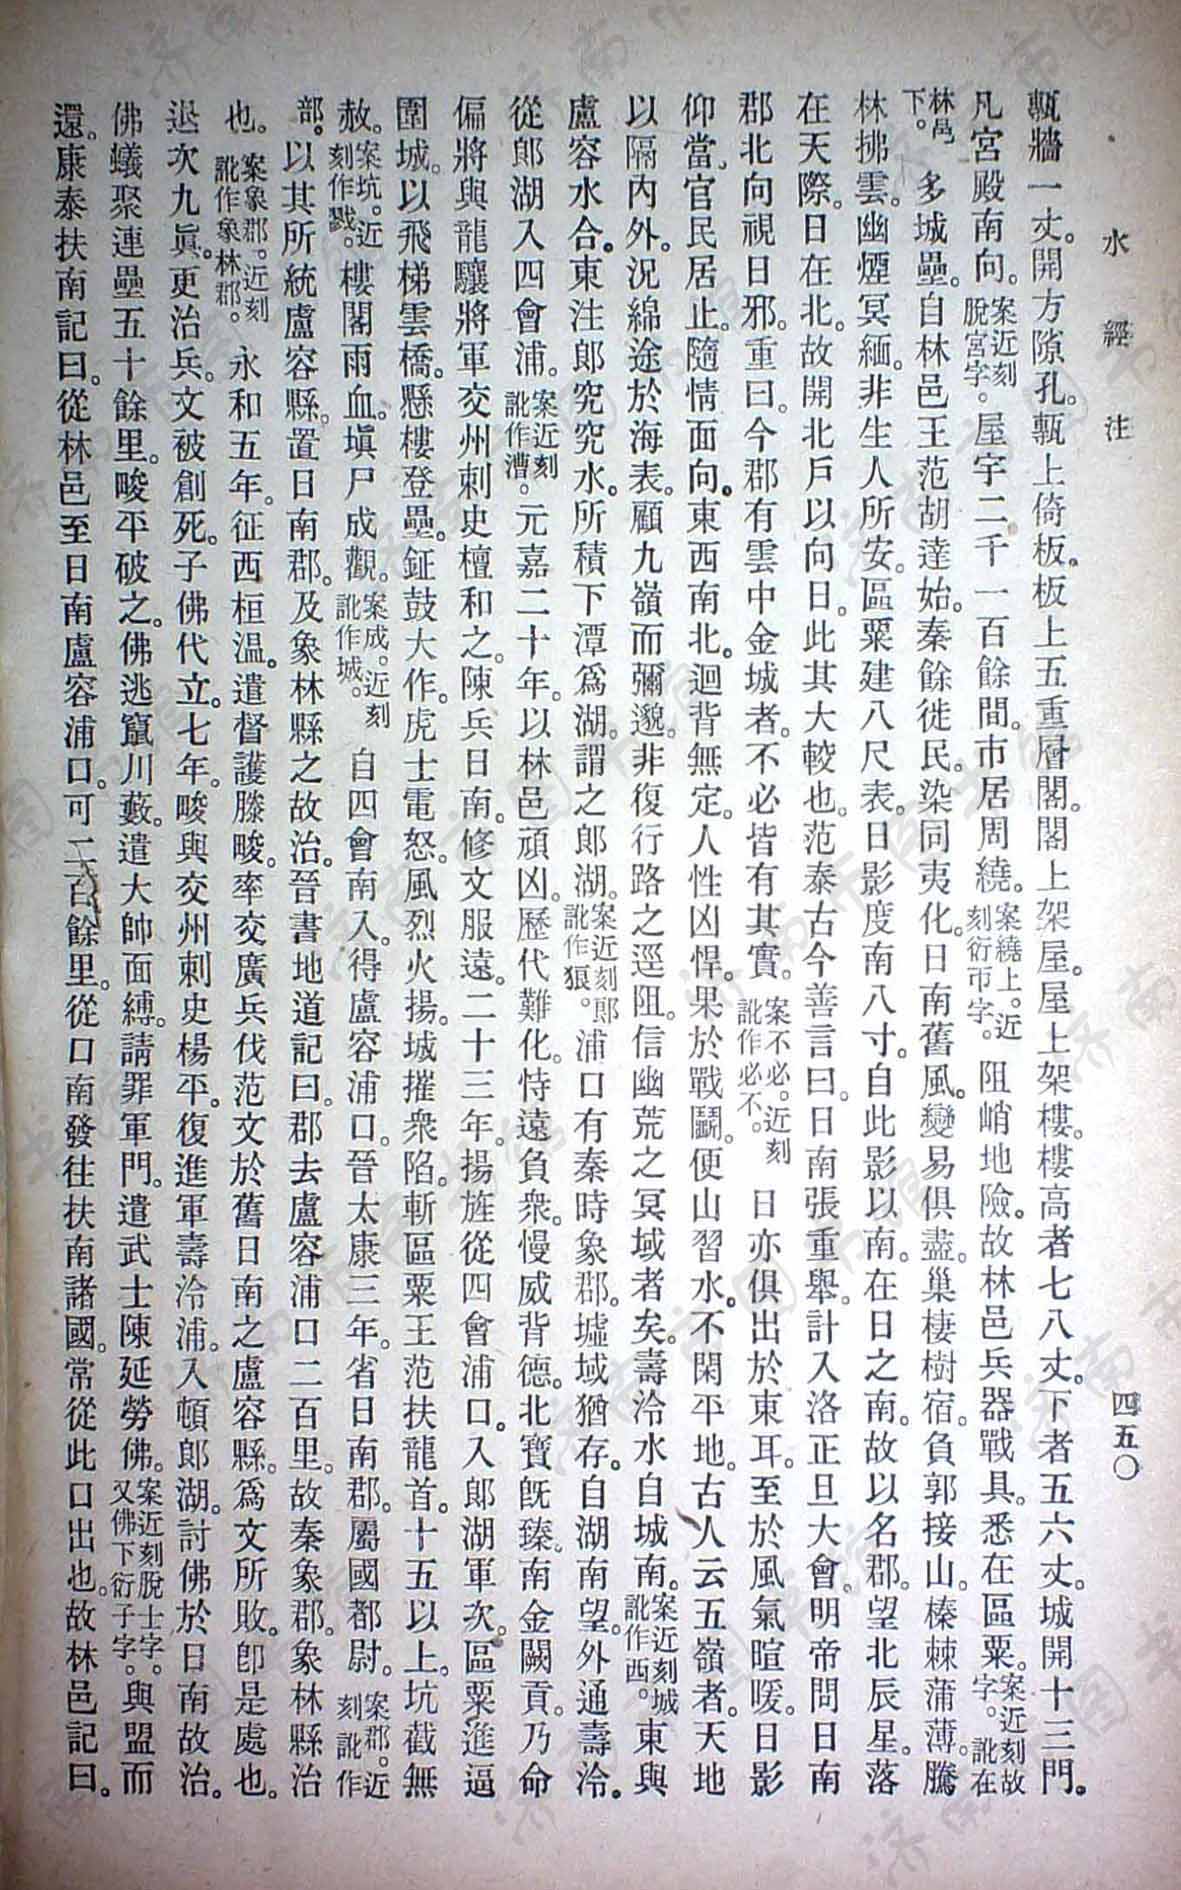 水經注
四五〇
甎牆一丈。開方隙孔。甎上倚板。板上五重層閣。閣上架屋。屋上架樓。樓高者七八丈。下者五六丈。城開十三門。
凡宮殿南向。案近刻脫宮字。屋宇二千一百餘間。市居周繞。案繞上。近刻衍市字。阻峭地險。故林邑兵器戰具。悉在區粟。案近刻故字。訛在
林邑下。多城壘。自林邑王范胡達始。秦餘徙民。染同夷化。日南舊風。變易俱盡。巢棲樹宿。負郭接山。榛棘蒲薄。騰
林拂雲。幽煙冥緬。非生人所安。區粟建八尺表。日影度南八寸。自此影以南。在日之南。故以名郡。望北辰星。落
在天際。日在北。故開北戶以向日。此其大較也。范泰古今善言曰。日南張重舉。計入洛正旦大會。明帝問日南
郡北向視日邪。重曰。今郡有雲中金城者。不必皆有其實。案不必。近刻訛作必不。日亦俱出於東耳。至於風氣暄暖。日影
仰當。官民居止。隨情面向。東西南北。迴背無定。人性凶悍。果於戰鬭。便山習水。不閑平地。古人云五嶺者。天地
以隔內外。況綿途於海表。顧九嶺而彌邈。非復行路之逕阻。信幽荒之冥域者矣。壽泠水自城南。案近刻城訛作西。東與
盧容水合。東注郎究究水。所積下潭爲湖。謂之郎湖。案近刻郎訛作狼。浦口有秦時象郡。墟域猶存。自湖南望。外通壽泠。
從郎湖入四會浦。案近刻訛作漕。元嘉二十年。以林邑頑凶。歷代難化。恃遠負衆。慢威背德。北寶旣臻。南金闕貢。乃命
偏將與龍驤將軍交州刺史檀和之。陳兵日南。修文服遠。二十三年。揚旌從四會浦口。入郎湖軍次。區粟進逼
圍城。以飛梯雲橋。懸樓登壘。鉦鼓大作。虎士電怒。風烈火揚。城摧衆陷。斬區粟王范扶龍首。十五以上。坑截無
赦。案坑。近刻作戮。樓閣雨血。塡尸成觀。案成。近刻訛作城。自四會南入。得盧容浦口。晉太康三年。省日南郡。屬國都尉。案郡。近刻訛作
部。以其所統盧容縣。置日南郡。及象林縣之故治。晉書地道記曰。郡去盧容浦口二百里。故秦象郡。象林縣治
也。案象郡。近刻訛作象林郡。永和五年。征西桓溫。遣督護滕畯。率交廣兵伐范文於舊日南之盧容縣。爲文所敗。卽是處也。
退次九眞。更治兵。文被創死。子佛代立。七年。畯與交州刺史楊平。復進軍壽泠浦。入頓郎湖。討佛於日南故治。
佛蟻聚連壘五十餘里。畯平破之。佛逃竄川藪。遣大帥面縛。請罪軍門。遣武士陳延勞佛。案近刻脫士字。又佛下衍子字。與盟而
還。康泰扶南記曰。從林邑至日南盧容浦口。可二百餘里。從口南發往扶南諸國。常從此口出也。故林邑記曰。